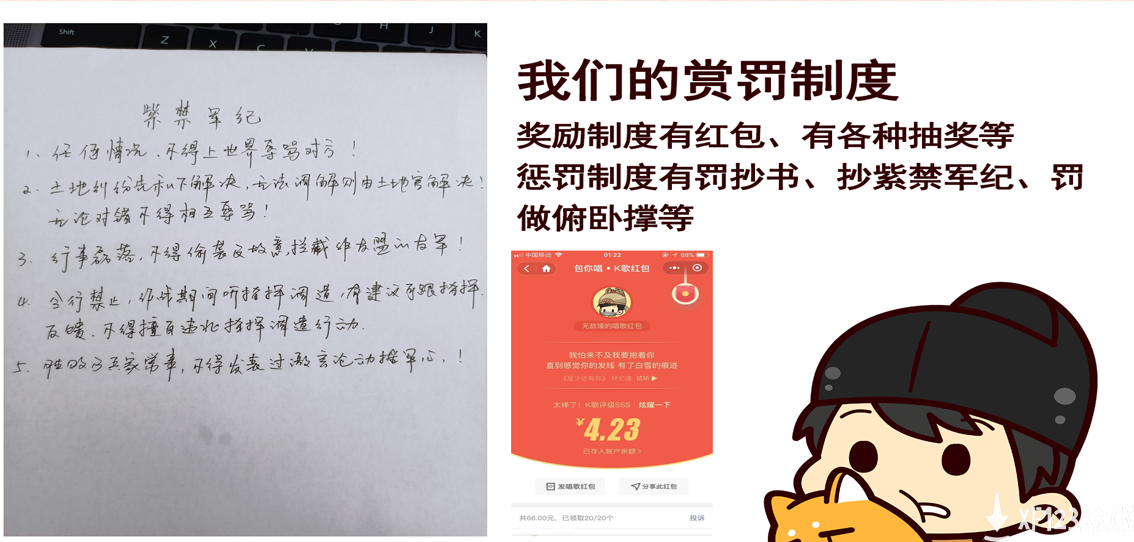 Shift
Z
X
C
H
J
K
紫禁军纪
1、任何情况、不得上世界辱骂对方！
2、土地纠纷先私下解决，无法调解则由土地官解决！
无论对错不得相互辱骂！
3、行事磊落，不得偷袭及故意拦截印友盟的友军！
4、令行禁止，作战期间听指挥调遣，有建议可跟指挥
反馈、不得擅自违北指挥调遣行动.
5、胜败乃兵家常事，不得发表过激言论动摇军心.！
我们的赏罚制度
奖励制度有红包、有各种抽奖等
惩罚制度有罚抄书、抄紫禁军纪、罚
做俯卧撑等
中国移动
01:22
68%
包你唱 • K歌红包
无敌臻的唱歌红包
我怕来不及我要抱着你
直到感觉你的发线 有了白雪的痕迹
《至少还有你》 林忆莲 试听
太棒了！K歌评级SSS 炫耀一下
¥4.23
已存入账户余额 >
发唱歌红包
分享此红包
共66.00元，已领取20/20个
投诉